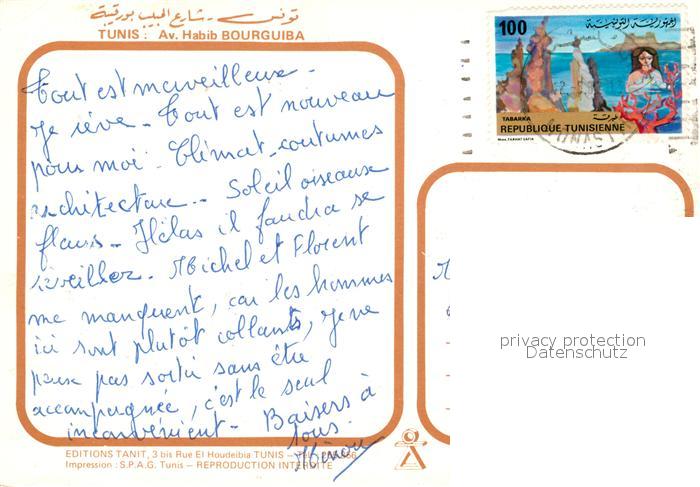 تونس - شارع الحبيب بورقيبة
TUNIS : Av. Habib BOURGUIBA
100
الجمهورية التونسية
TABARKA طبرقة
REPUBLIQUE TUNISIENNE
Tout est merveilleux -
Je rêve - Tout est nouveau
pour moi. Climat - coutumes
architecture - Soleil oiseaux
fleurs - Hélas il faudra se
réveiller. Michel et Florent
me manquent, car les hommes
ici sont plutôt collants, je ne
peux pas sortir sans être
accompagnée, c'est le seul
inconvénient - Baisers à
tous.
privacy protection
Datenschutz
EDITIONS TANIT, 3 bis Rue El Houdeibia TUNIS - Tél.
Impression : S.P.A.G. Tunis - REPRODUCTION INTERDITE